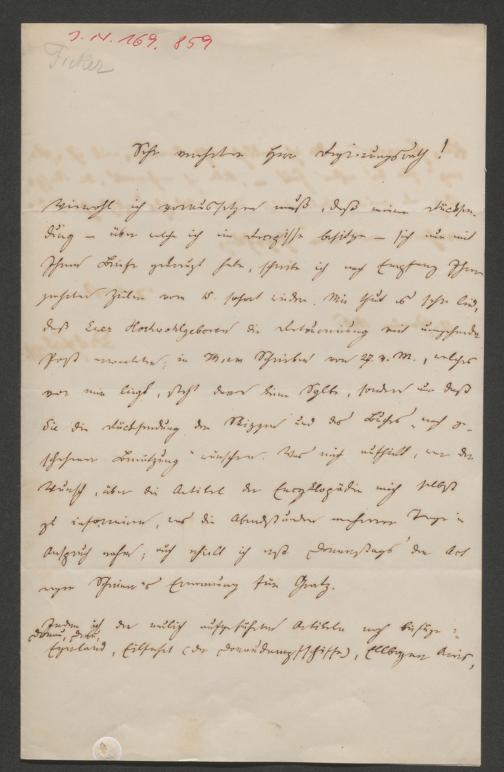 J. N. 169. 859
Ficker
Sehr verehrter Herr Regierungsrath!
Wiewohl ich voraussetzen muß, daß meine Rücksen-
dung – über welche ich ein Recepisse besitze – sich nun mit
Ihrem Briefe gekreuzt habe, schreibe ich nach Empfang Ihrer
geehrten Zeilen vom 15. sofort wieder. Mir thut es sehr leid,
daß Euer Hochwohlgeboren die Retournirung mit umgehender
Post erwarteten; in Ihrem Schreiben vom 27. v. M., welches
vor mir liegt, steht davon keine Sylbe, sondern nur daß
Sie die Rücksendung der Skizzen und des Buches „nach ge-
schehener Benützung" wünschen. Was mich aufhielt, war der
Wunsch, über die Artikel der Encyklopädie mich selbst
zu informiren, was die Abendstunden mehrerer Tage in
Anspruch nahm; auch erhielt ich erst Donnerstags den Act
wegen Ernennung für Gratz.
Indem ich den neulich aufgeführten Artikeln noch beifüge:
Donau,
Egerland, Eilfahrt (der Donaudampfschiffe),